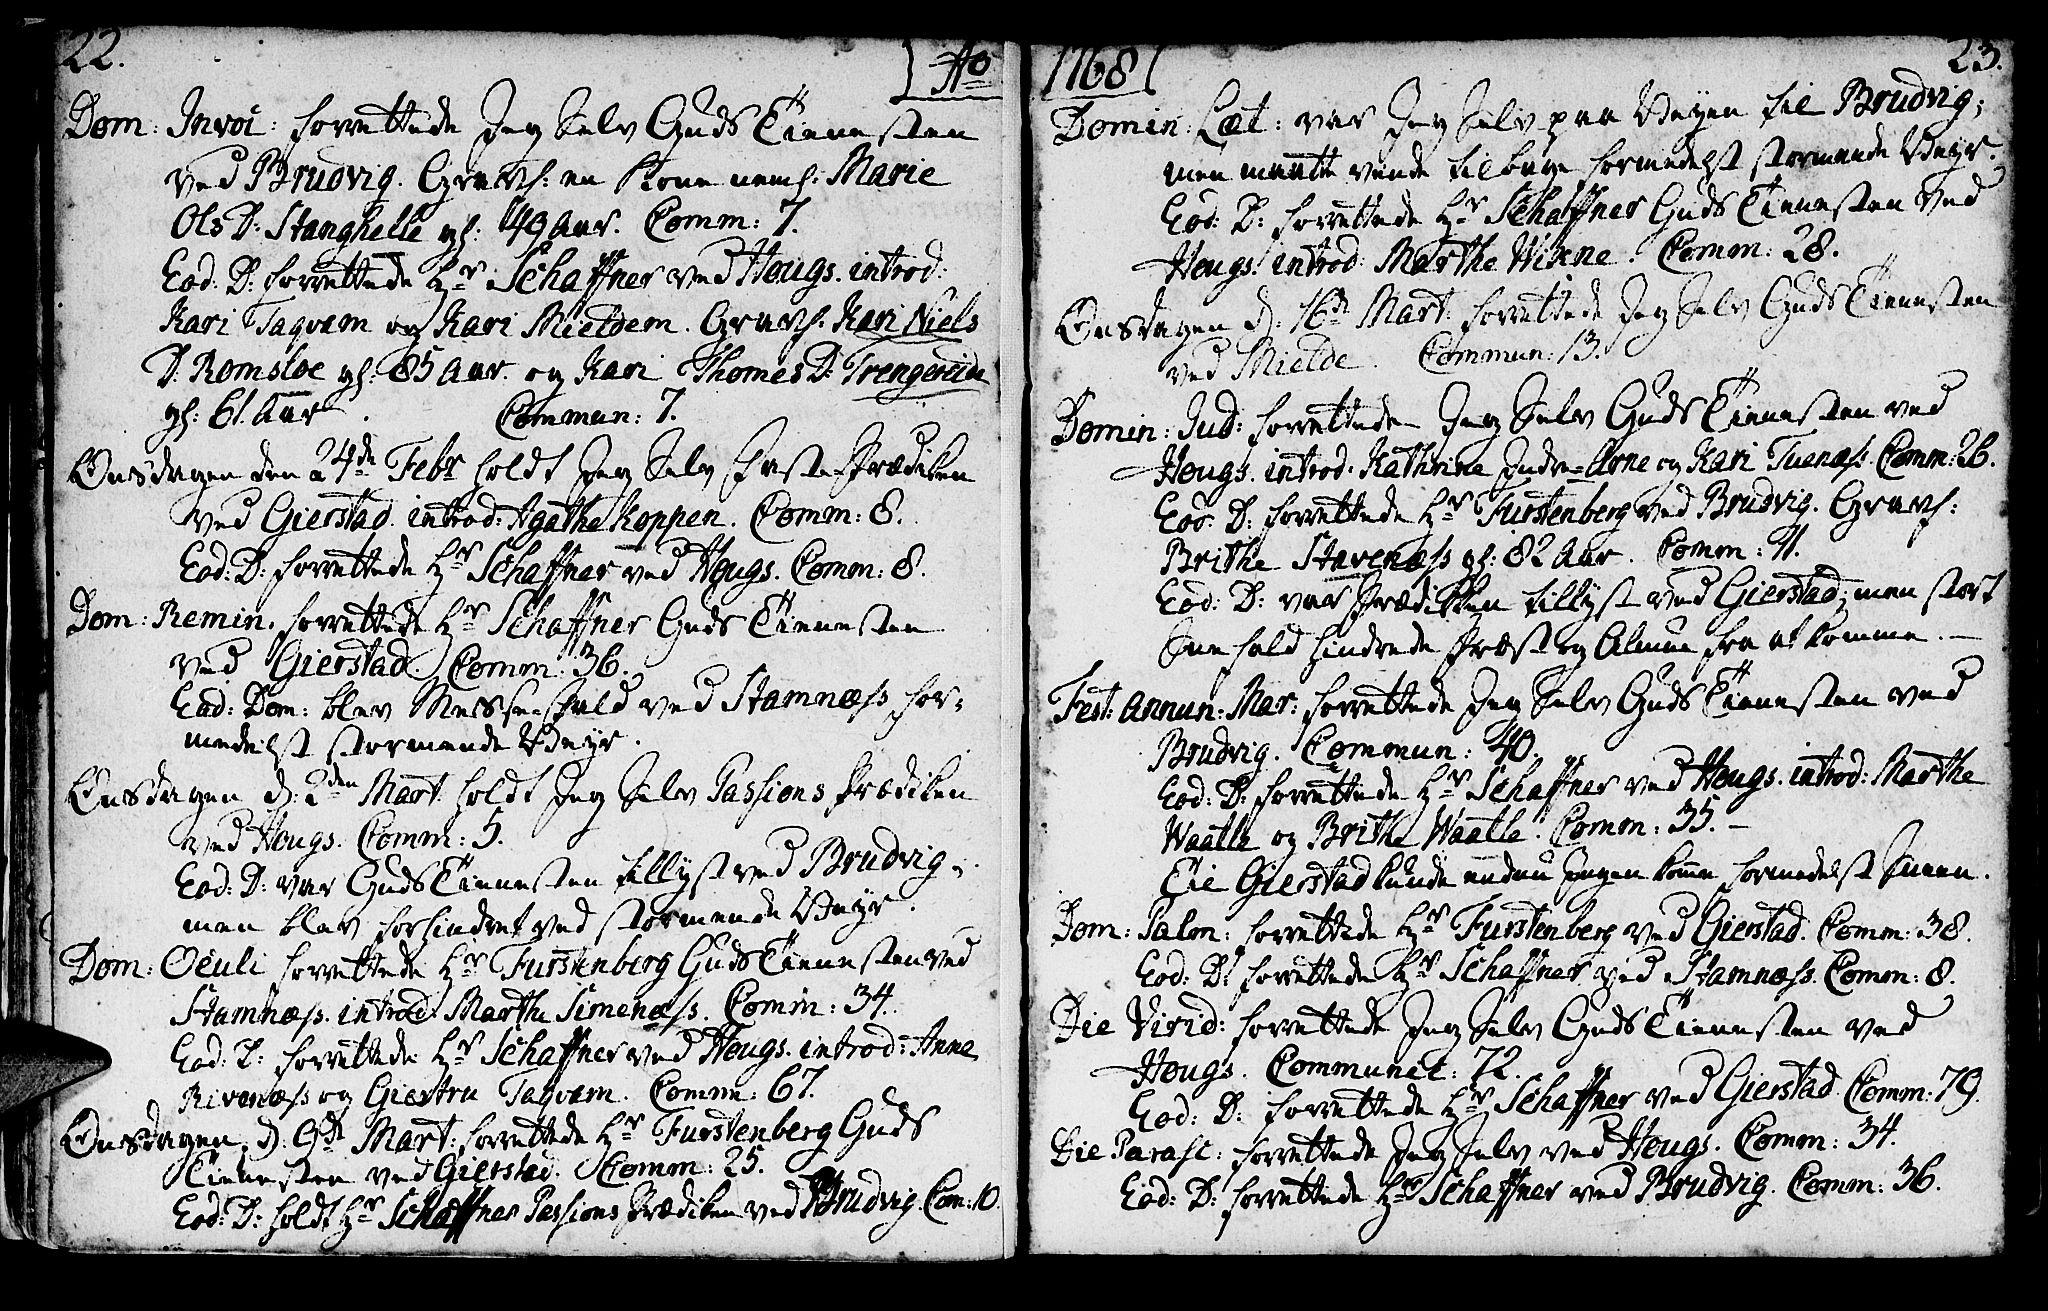 22.
Ao
Dom: Invoc: forrettede Jeg Selv Guds Tienesten
ved Brudvig. Gravf: en Kone nemf: Marie
Ols D: Stanghelle gf: 49 Aar. Comm: 7.
Eod: D: forrettede Hr Schaffner ved Hougs. introd:
Kari Taqvam og Kari Mieldem. Gravf. Kari Niels
D. Romsloe gf: 85 Aar. og Kari Thomes D: Trengereide
gf: 61. Aar. Commun: 7.
Onsdagen den 24de Febr holdt Jeg Selv Faste-Prædiken
ved Gierstad. introd: Agathe Koppen. Comm: 8.
Eod: D: forrettede Hr Schaffner ved Hougs. Comm: 8.
Dom: Remin. forrettede Hr Schaffner Guds Tienesten
ved Gierstad. Comm: 36.
Eod: Dom: blev Messe-Fald ved Stamnæss for-
medelst stormende Veyr.
Onsdagen d: 2den Mart: holdt Jeg Selv Passions Prædiken
ved Hougs. Comm: 5.
Eod: D: var Guds Tienesten tillyst ved Brudvig,
men blev forhindret ved stormende Veyr.
Dom: Oculi forrettede Hr Furstenberg Guds Tienesten ved
Stamnæss. introd: Marthe Simenæss. Comm: 34.
Eod: D: forrettede Hr Schaffner ved Hougs. introd: Anna
Rivenæss og Giertru Taqvam. Comm: 67.
Onsdagen d: 9de Mart: forrettede Hr Furstenberg Guds
Tienesten ved Gierstad. Comm: 25.
Eod: D: holdt Hr Schaffner Passions Prædiken ved Brudvig. Com: 10.
1768
23.
Domin: Læt: var Jeg Selv paa Veyen til Brudvig;
men maatte vende tilbage formedelst stormende Veyr.
Eod: D: forrettede Hr Schaffner Guds Tienesten ved
Hougs. introd: Marthe Wixne. Comm: 28.
Onsdagen d: 16de Mart: forrettede Jeg Selv Guds Tienesten
ved Mielde. Commun: 13.
Domin: Jud: forrettede Jeg Selv Guds Tienesten ved
Hougs. introd: Kathrine Indre-Arne og Kari Tuenæss. Comm: 26.
Eod: D: forrettede Hr Furstenberg ved Brudvig. Gravf:
Brithe Stavenæss gf: 82 Aar. Comm: 11.
Eod: D: var Prædiken tillyst ved Gierstad; men stort
Snefald hindrede Præst og Almue fra at komme.
Fest: Annun: Mar: forrettede Jeg Selv Guds Tienesten ved
Brudvig. Commun: 40.
Eod: D: forrettede Hr Schaffner ved Hougs. introd: Marthe
Waatle og Brithe Waatle. Comm: 35.
Til Gierstad kunde endnu Ingen komme formedelst Sneen.
Dom: Palm: forrettede Hr Furstenberg ved Gierstad. Comm: 38.
Eod: D: forrettede Hr Schaffner ved Stamnæss. Comm: 8.
Die Virid: forrettede Jeg Selv Guds Tienesten ved
Hougs. Communic: 72.
Eod: D: forrettede Hr Schaffner ved Gierstad. Comm: 79.
Die Parasc: forrettede Jeg Selv ved Hougs. Comm: 34.
Eod: D: forrettede Hr Schaffner ved Brudvig. Comm: 36.